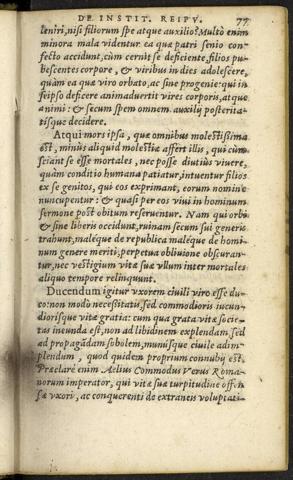 DE INSTIT. REIPV. 77
leniri, nisi filiorum spe atque auxilio. Multò enim
minora mala videntur ea quæ patri senio con-
fecto accidunt, cùm cernit se deficiente, filios pu-
bescentes corpore, & viribus in dies adolescere,
quàm ea quæ viro orbato, ac sine progenie: qui in
seipso deficere animaduertit vires corporis, atque
animi: & secum spem omnem auxilij posterita-
tisque decidere.
Atqui mors ipsa, quæ omnibus molestissima
est, minùs aliquid molestiæ affert illis, qui cùm
sciant se esse mortales, nec posse diutiùs viuere,
quàm conditio humana patiatur, intuentur filios
ex se genitos, qui eos exprimant, eorum nomine
nuncupentur: & quasi per eos viui in hominum
sermone post obitum reseruentur. Nam qui orbi
& sine liberis occidunt, ruinam secum sui generis
trahunt, maléque de republica maléque de homi-
num genere meriti, perpetua obliuione obscuran-
tur, nec vestigium vitæ suæ vllum inter mortales
aliquo tempore relinquunt.
Ducendam igitur vxorem ciuili viro esse du-
co: non modò necessitatis, sed commodioris iucun-
diorisque vitæ gratia: cum qua grata vitæ socie-
tas ineunda est, non ad libidinem explendam, sed
ad propagādam sobolem, munusque ciuile adim-
plendum, quod quidem proprium connubij est.
Præclarè enim Aelius Commodus Verus Roma-
norum imperator, qui vitæ suæ turpitudine offen-
sa vxori, ac conquerenti de extraneis voluptati-